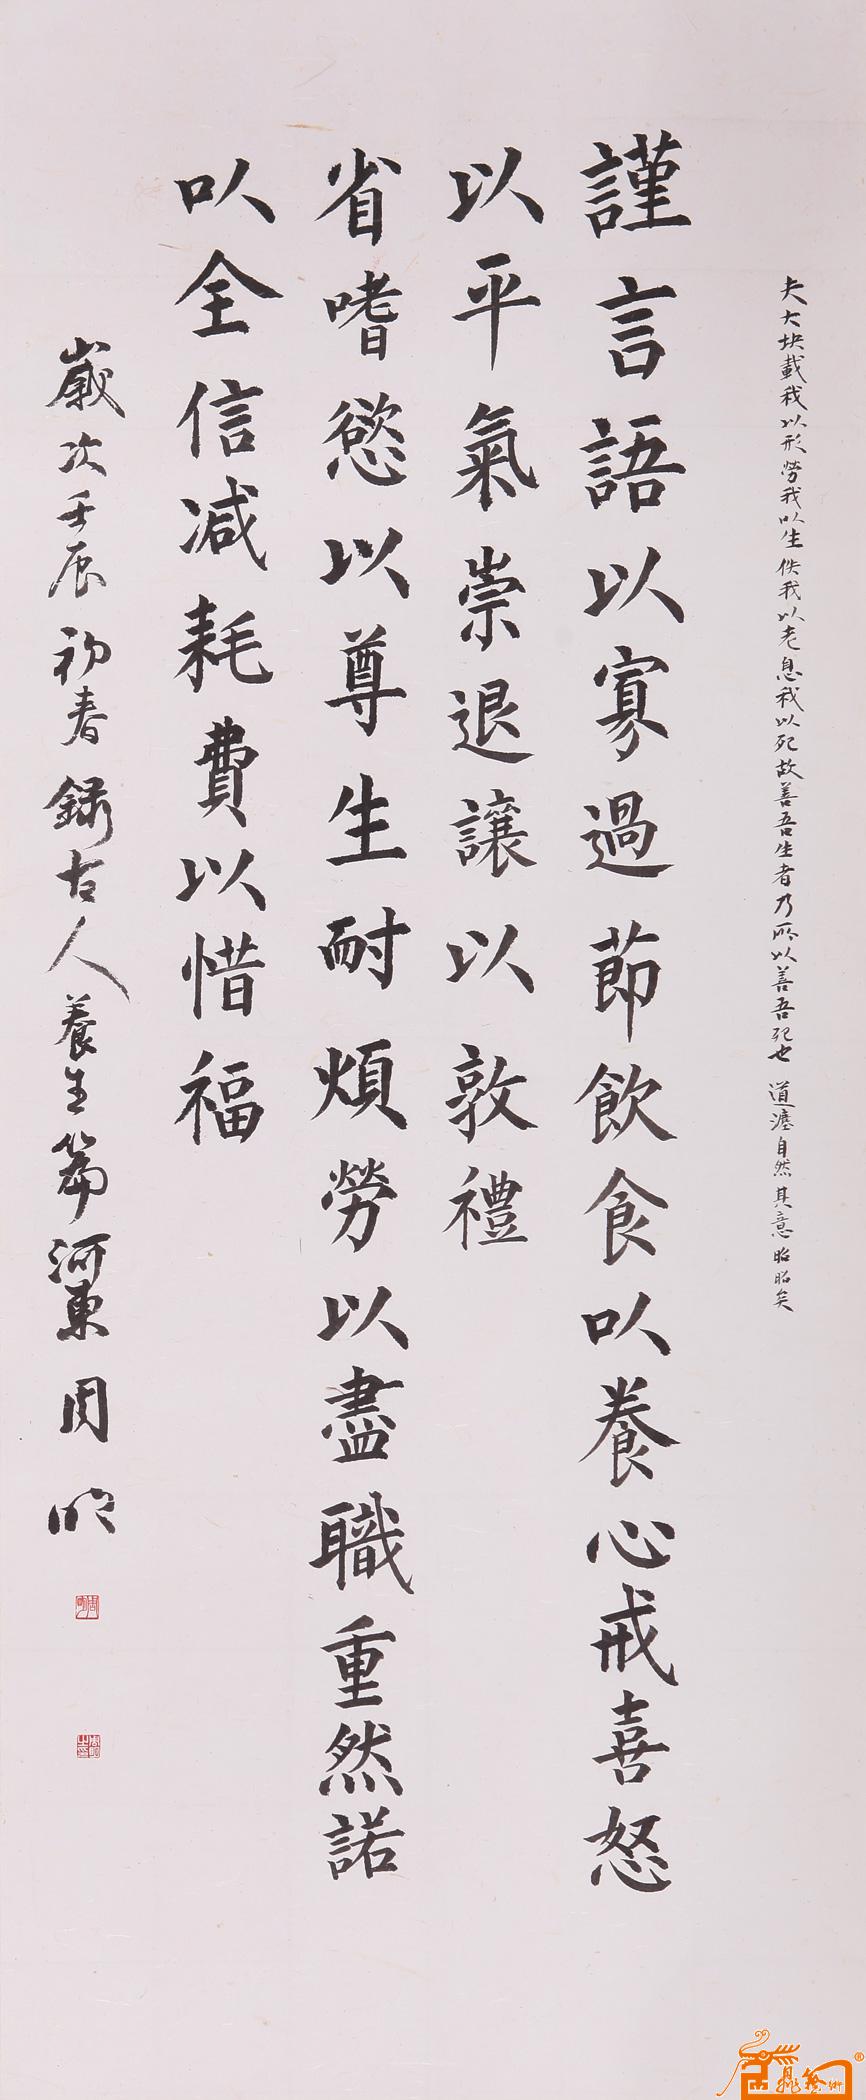 夫大块載我以形勞我以生佚我以老息我以死故善吾生者乃所以善吾死也 道灋自然其意昭昭矣
謹言語以寡過節飲食以養心戒喜怒
以平氣崇退讓以敦禮
省嗜慾以尊生耐煩勞以盡職重然諾
以全信減耗費以惜福
嚴次壬辰初春錄古人養生篇河東周明